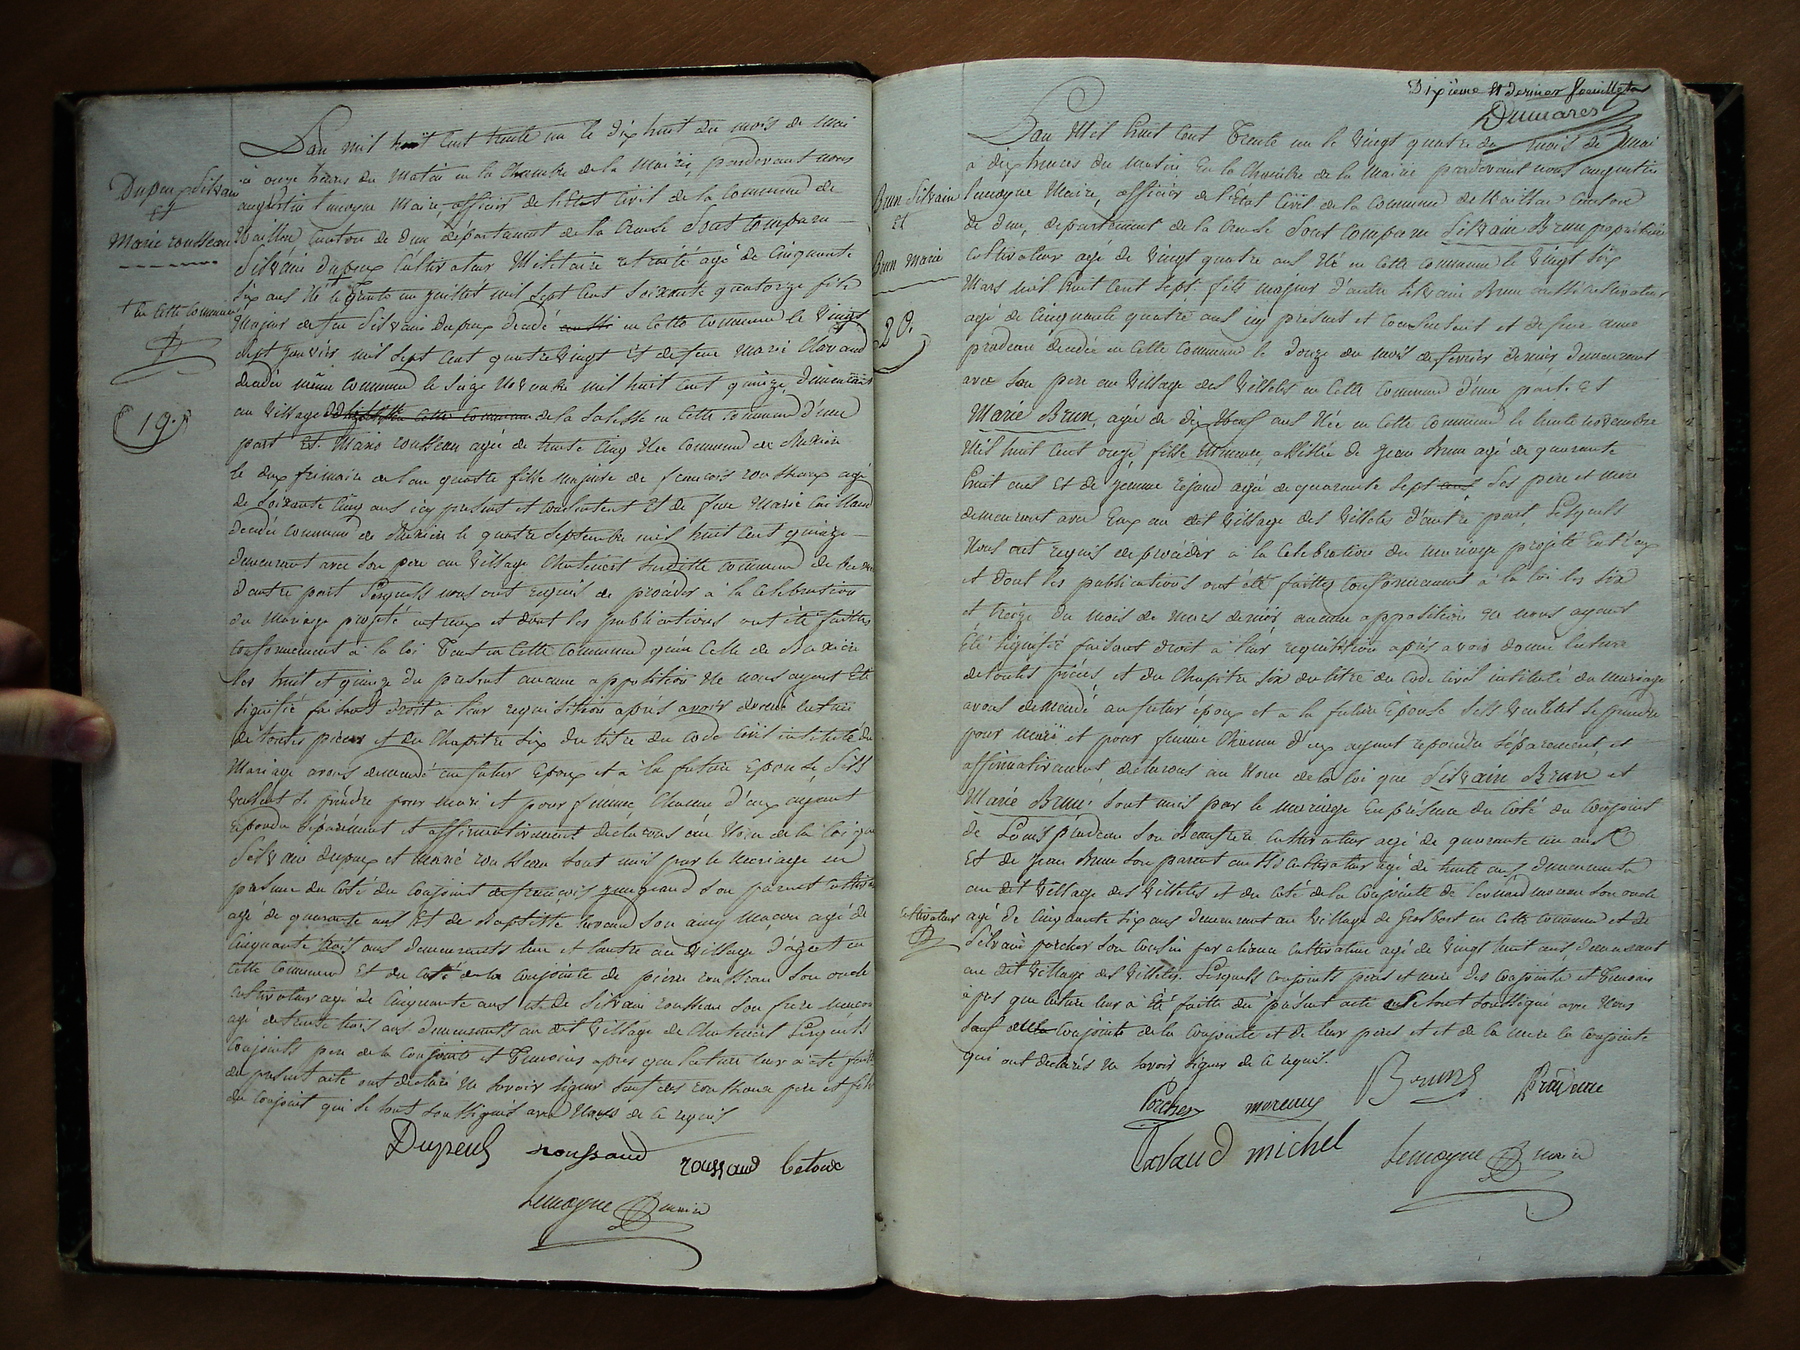 Dupeux Silvain
et
Marie rousseau
+ en cette commune
19.
L'an mil huit cent trente un le dix huit du mois de mai
à onze heures du matin en la Chambre de la Mairie, pardevant nous
augustin Lemoyne Maire, officier de l'état Civil de la Commune de
canton de dun département de la Creuse Sont comparu
Silvain Dupeux Cultivateur Militaire retraité agé de Cinquante
six ans Né le trente un juillet mil sept cent soixante quatorze fils
Majeur de feu Silvain Dupeux décédé aussi en cette Commune le Vingt
sept janvier mil sept cent quatre vingt et de feue Marie
décédée même commune le Seize Novembre mil huit cent quinze, demeurant
au Village de la en cette commune d'une
part Et Marie rousseau agée de trente Cinq Née commune de
le deux frimaire de l'an quatre fille majeure de francois rousseaux agé
de Soixante Cinq ans icy présent et consentent Et de feue Marie
décédée Commune de le quatre Septembre mil huit cent quinze
demeurant avec son père au Village susditte commune de
d'autre part Lesquels nous ont requis de procéder à la Célébration
du Mariage projeté entreux et dont les publications ont été faittes
conformément à la loi Tant en cette commune qu'en celle de
les huit et quinze du présent aucune opposition Ne nous ayant été
signifié faisant droit à leur requisition après avoir donné lecture
de toutes pièces et du Chapitre six du titre du Code Civil intitulé du
Mariage avons demandé au futur Epoux et à la future Epouse, s'ils
veulent se prendre pour mari et pour femme Chacun d'eux ayant
répondu séparément et affirmativement déclarons au Nom de la loi que
Silvain dupeux et Marie rousseau sont unis par le mariage en
présence du Coté du Conjoint de françois son parent
agé de quarante ans Et de Baptiste son amy Maçon agé de
Cinquante trois ans demeurants l'un et l'autre au Village en
cette Commune Et du Coté de la Conjointe de pierre rousseau son oncle
cultivateur agé de Cinquante ans et de Silvain rousseau son frère
agé de trente trois ans demeurants au dit Village de Lesquels
Conjoints père de la Conjointe et Temoins après que lecture leur a été faite
du présent acte ont déclaré Ne Savoir signer sauf père et
du Conjoint qui se sont soussignés avec Nous de ce requis
Dupeux roussaud roussaud
Lemoyne maire
Dixième et dernier feuillet
Brun Silvain
et
Brun Marie
20.
L'an Mil huit Cent Trente un le Vingt quatre du mois de mai
à dix heures du matin En la Chambre de la Mairie pardevant nous augustin
Lemoyne Maire, officier de l'Etat Civil de la Commune de Canton
de dun, departement de la Creuse Sont Comparu Silvain Brun propriétaire
Cultivateur agé de Vingt quatre ans Né en Cette Commune le Vingt Six
Mars mil huit cent sept fils majeur d'autre Silvain Brun aussi cultivateur
agé de Cinquante quatre ans icy présent et Consentent et de feue anne
décédée en cette Commune le Douze du mois de février dernier demeurant
avec son père au Village des Villetes en cette Commune d'une part. Et
Marie Brun, agée de dix Neuf ans Née en cette Commune le trente novembre
Mil huit Cent onze fille Mineure, assistée de Jean Brun agé de quarante
huit ans Et de Jeanne agée de quarante sept ans Ses père et mère
demeurant avec Eux au dit Village des Villetes d'autre part, Lesquels
Nous ont requis de procéder à la Célébration du mariage projeté Entr'eux
et dont les publications ont été faittes conformément à la loi les six
et treize du mois de mars dernier aucune opposition ne nous ayant
Été Signifié faisant droit à leur requisition après avoir donné lecture
de toutes pièces, et du Chapitre six du titre du code civil intitulé du mariage
avons demandé au futur époux et a la future Epouse s'ils veulent se prendre
pour mari et pour femme Chacun d'eux ayant repondu séparement et
affirmativement, declarons au Nom de la loi que Silvain Brun et
Marie Brun. sont unis par le mariage En présence du Coté du Conjoint
de Louis son cultivateur agé de quarante un ans
Et de Jean Brun son parent aussi cultivateur agé de trente ans demeurants
au dit Village des Villetes et du coté de la Conjointe de Leonard moreau son oncle
cultivateur
agé de Cinquante six ans demeurant au Village de en cette commune et de
Silvain porcher son Cousin par aliance cultivateur agé de Vingt huit ans, demeurant
au dit Village des Villetes. Lesquels conjoints père et mère des Conjoints et Temoins
après que lecture leur a été faitte du présent acte se sont soussignés avec Nous
sauf de la conjointe et de leur pères et et de la mère la conjointe
qui ont déclarés ne savoir signer de ce requis.
Porcher moreau Brun
michel Lemoyne maire